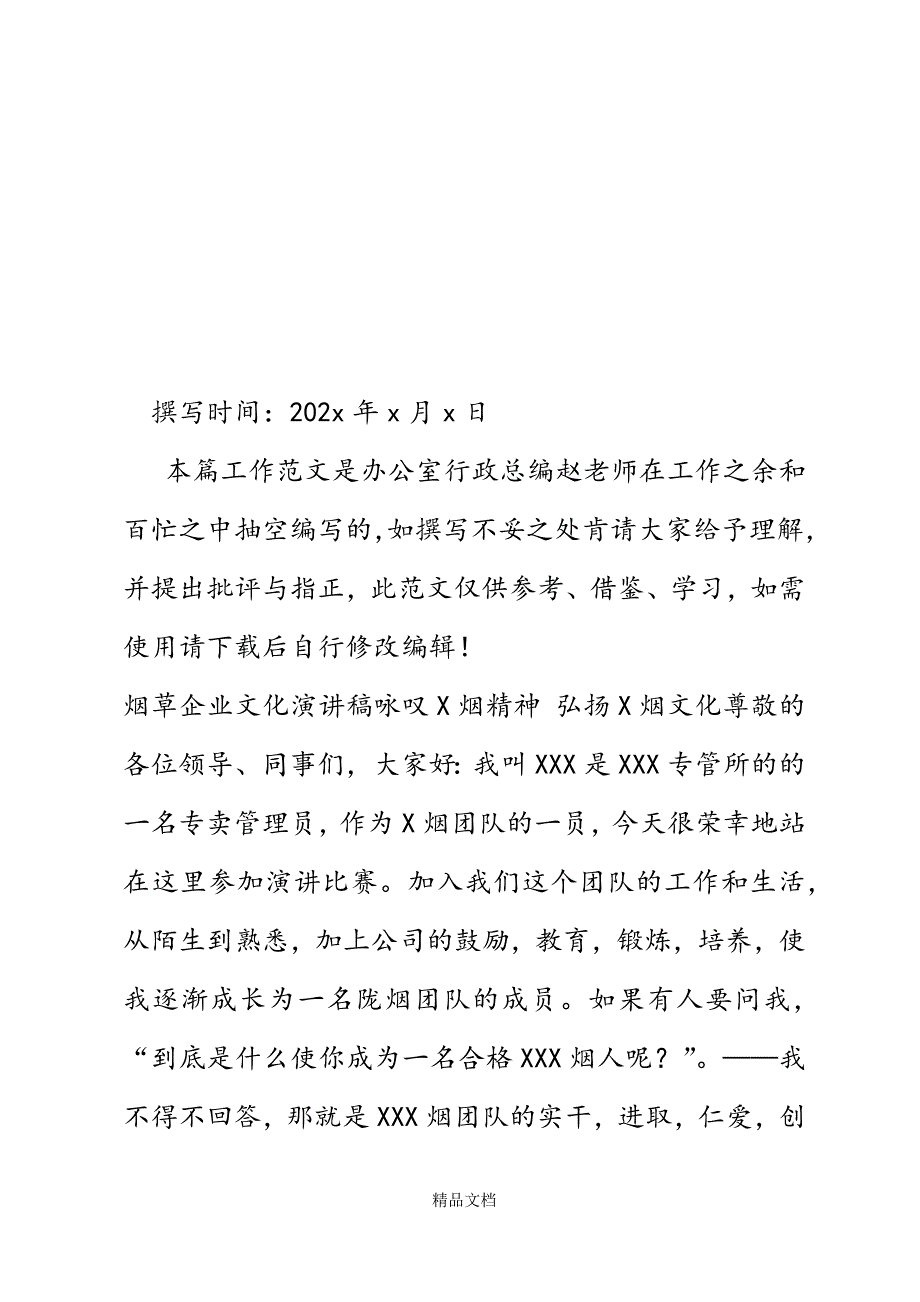 撰写时间：202x 年 x 月 x 日
本篇工作范文是办公室行政总编赵老师在工作之余和
百忙之中抽空编写的，如撰写不妥之处肯请大家给予理解，
并提出批评与指正，此范文仅供参考、借鉴、学习，如需
使用请下载后自行修改编辑！
烟草企业文化演讲稿咏叹 X 烟精神 弘扬 X 烟文化尊敬的
各位领导、同事们，大家好：我叫 XXX 是 XXX 专管所的的
一名专卖管理员，作为 X 烟团队的一员，今天很荣幸地站
在这里参加演讲比赛。加入我们这个团队的工作和生活，
从陌生到熟悉，加上公司的鼓励，教育，锻炼，培养，使
我逐渐成长为一名陇烟团队的成员。如果有人要问我，
“到底是什么使你成为一名合格 XXX 烟人呢？”。——我
不得不回答，那就是 XXX 烟团队的实干，进取，仁爱，创
精品文档